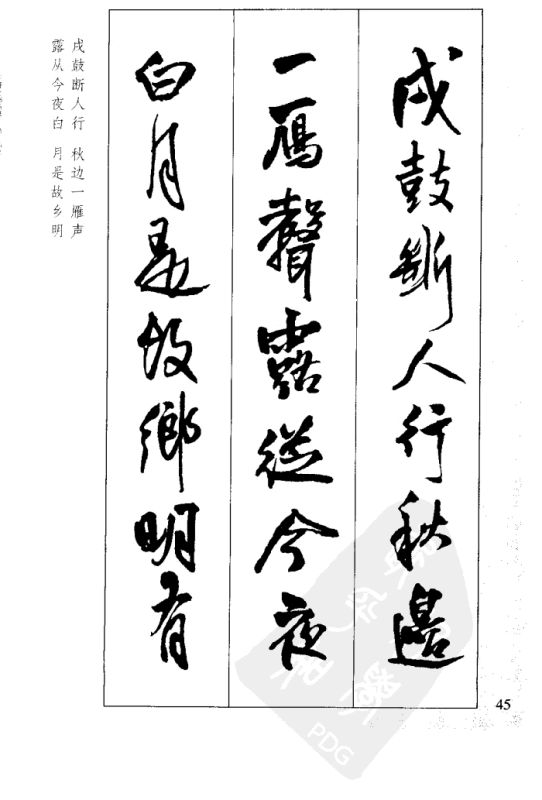 戍鼓斷人行秋邊
一鴈聲露從今夜
白月是故鄉明有
戍鼓断人行 秋边一雁声
露从今夜白 月是故乡明
45
PDG